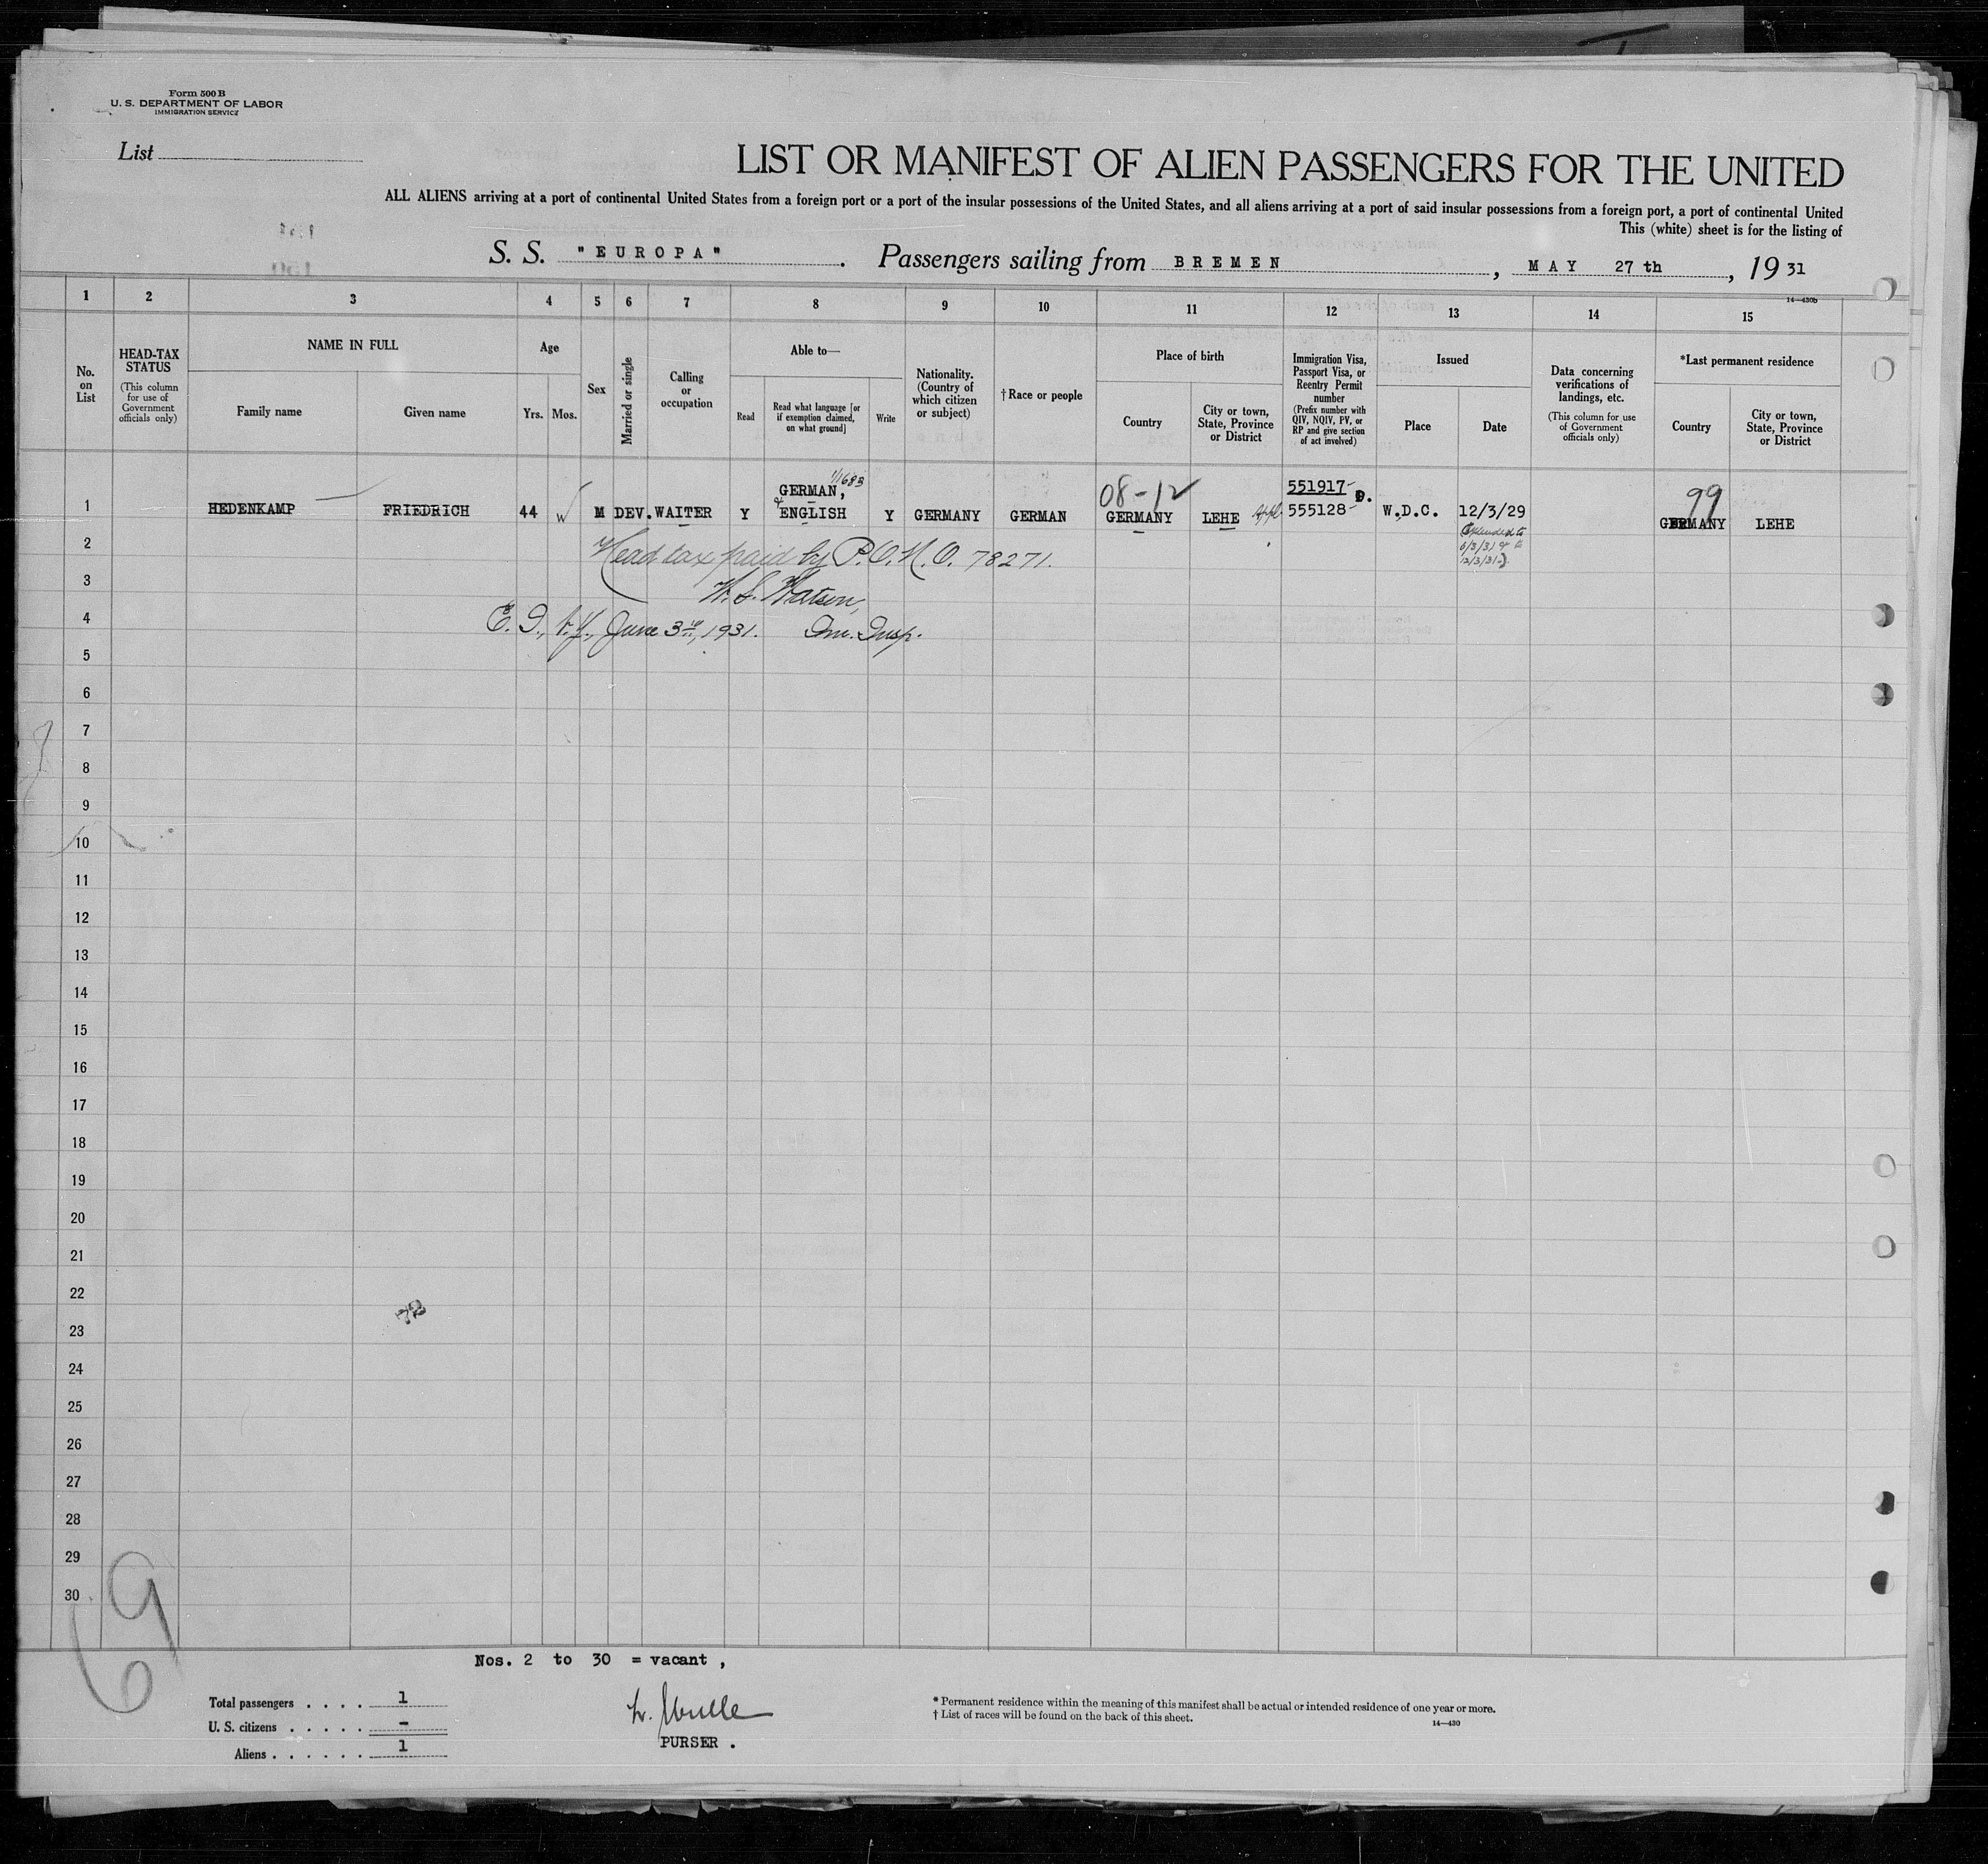 Form 500 B
U. S. DEPARTMENT OF LABOR
IMMIGRATION SERVICE
List
LIST OR MANIFEST OF ALIEN PASSENGERS FOR THE UNITED
ALL ALIENS arriving at a port of continental United States from a foreign port or a port of the insular possessions of the United States, and all aliens arriving at a port of said insular possessions from a foreign port, a port of continental United
This (white) sheet is for the listing of
S. S. "EUROPA". Passengers sailing from BREMEN, MAY 27th, 1931
14—430b
1 2 3 4 5 6 7 8 9 10 11 12 13 14 15
No. on List
HEAD-TAX STATUS
(This column for use of Government officials only)
NAME IN FULL
Family name
Given name
Age
Yrs. Mos.
Sex
Married or single
Calling or occupation
Able to—
Read
Read what language [or if exemption claimed, on what ground]
Write
Nationality. (Country of which citizen or subject)
† Race or people
Place of birth
Country
City or town, State, Province or District
Immigration Visa, Passport Visa, or Reentry Permit number
(Prefix number with QIV, NQIV, PV, or RP and give section of act involved)
Issued
Place
Date
Data concerning verifications of landings, etc.
(This column for use of Government officials only)
*Last permanent residence
Country
City or town, State, Province or District
11683
08-12
551917
99
1 HEDENKAMP FRIEDRICH 44 W M DEV. WAITER Y GERMAN, & ENGLISH Y GERMANY GERMAN GERMANY LEHE 555128 W.D.C. 12/3/29 GERMANY LEHE
(Extended to
6/3/31 & to
12/3/31)
2 Head tax paid by P.O.N.O. 78271.
3 W. S. Watson,
4 E. I., N.Y., June 3rd, 1931. Im. Insp.
5
6
7
8
9
10
11
12
13
14
15
16
17
18
19
20
21
22
72
23
24
25
26
27
28
29
30
69
Nos. 2 to 30 = vacant,
Total passengers . . . . 1
U. S. citizens . . . . . -
Aliens . . . . . . 1
PURSER.
* Permanent residence within the meaning of this manifest shall be actual or intended residence of one year or more.
† List of races will be found on the back of this sheet.
14—430